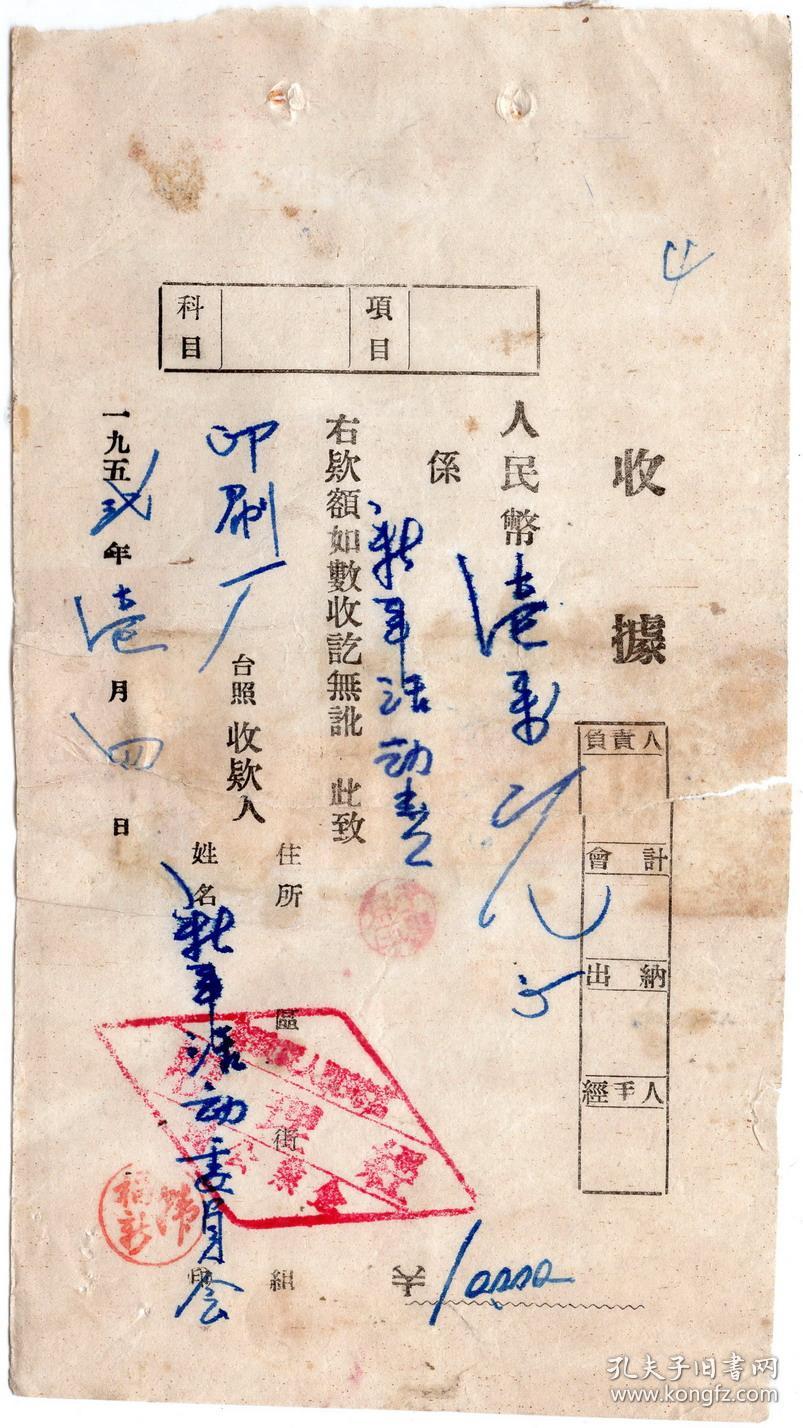 收據
負責人
會計
出納
經手人
人民幣壹萬元
係新年活動費
右欵額如數收訖無訛 此致
印刷厂 台照
收欵人
住所 區 街 組
姓名 新年活动委員会 印
一九五弐年壹月四日
科目
項目
10000
福新
孔夫子旧書网
www.kongfz.com